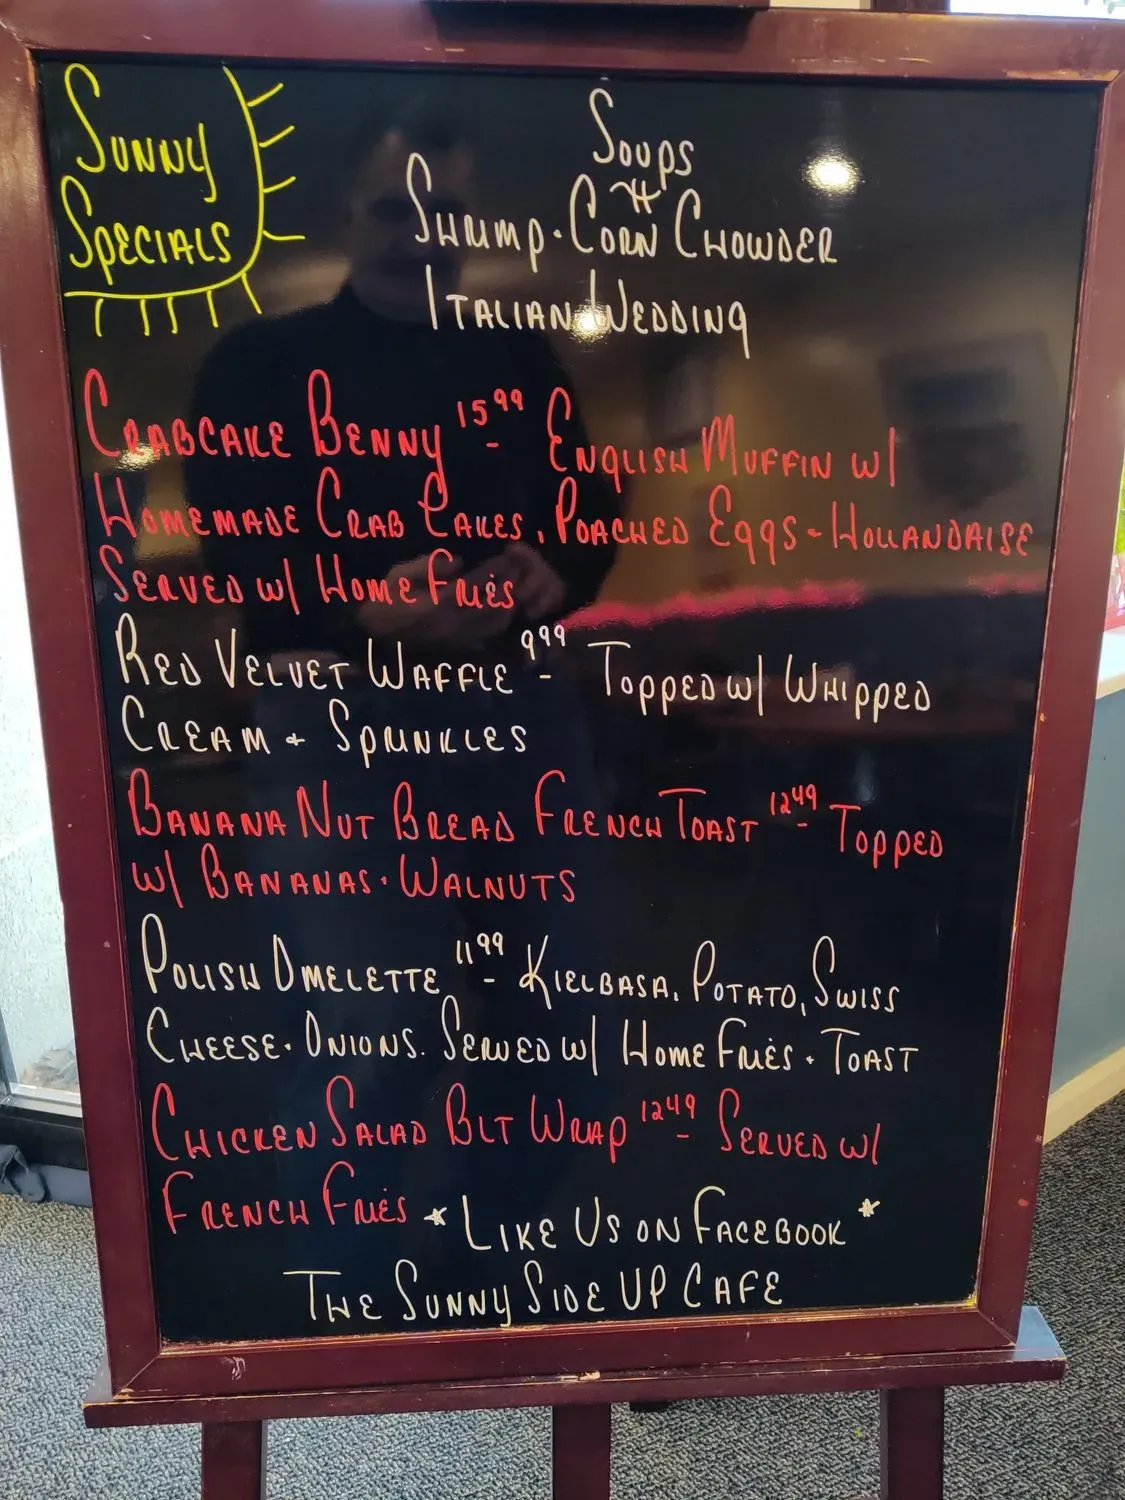 Sunny
Specials
Soups
Shrimp · Corn Chowder
Italian Wedding
Crabcake Benny 15.99 - English Muffin w/
Homemade Crab Cakes, Poached Eggs - Hollandaise
Served w/ Home Fries
Red Velvet Waffle 9.99 - Topped w/ Whipped
Cream + Sprinkles
Banana Nut Bread French Toast 12.49 - Topped
w/ Bananas · Walnuts
Polish Omelette 11.99 - Kielbasa, Potato, Swiss
Cheese · Onions. Served w/ Home Fries · Toast
Chicken Salad BLT Wrap 12.49 - Served w/
French Fries * Like Us on Facebook *
The Sunny Side UP Cafe